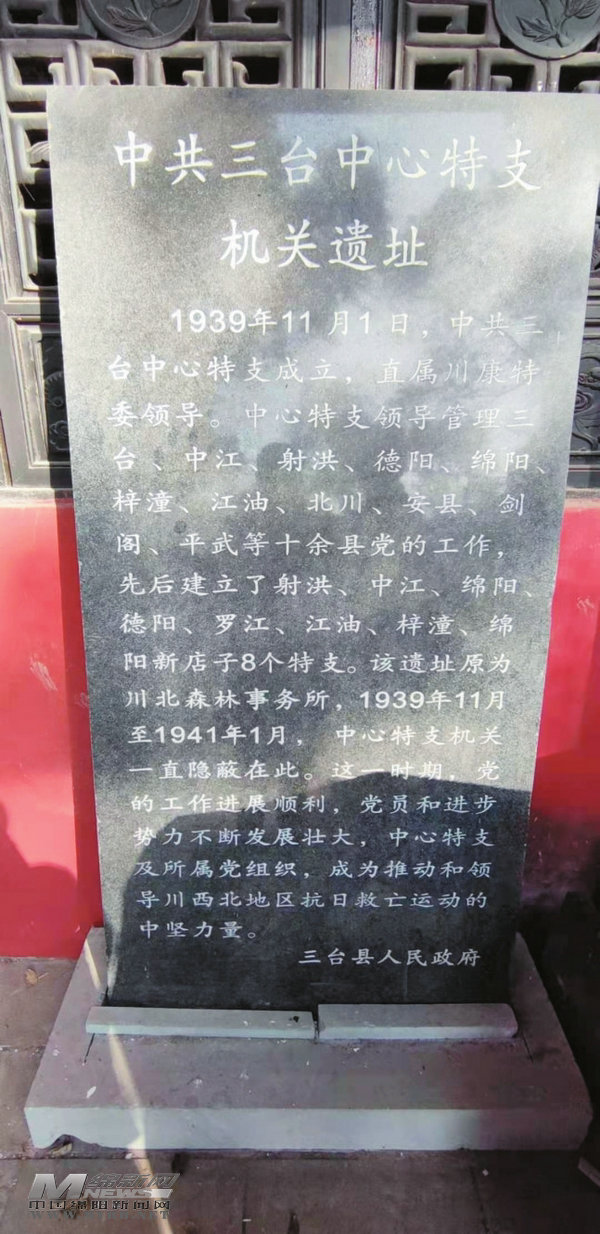 中共三台中心特支
机关遗址
1939年11月1日，中共三
台中心特支成立，直属川康特
委领导。中心特支领导管理三
台、中江、射洪、德阳、绵阳、
梓潼、江油、北川、安县、剑
阁、平武等十余县党的工作，
先后建立了射洪、中江、绵阳、
德阳、罗江、江油、梓潼、绵
阳新店子8个特支。该遗址原为
川北森林事务所，1939年11月
至1941年1月，中心特支机关
一直隐蔽在此。这一时期，党
的工作进展顺利，党员和进步
势力不断发展壮大，中心特支
及所属党组织，成为推动和领
导川西北地区抗日救亡运动的
中坚力量。
三台县人民政府
中国绵阳新闻网